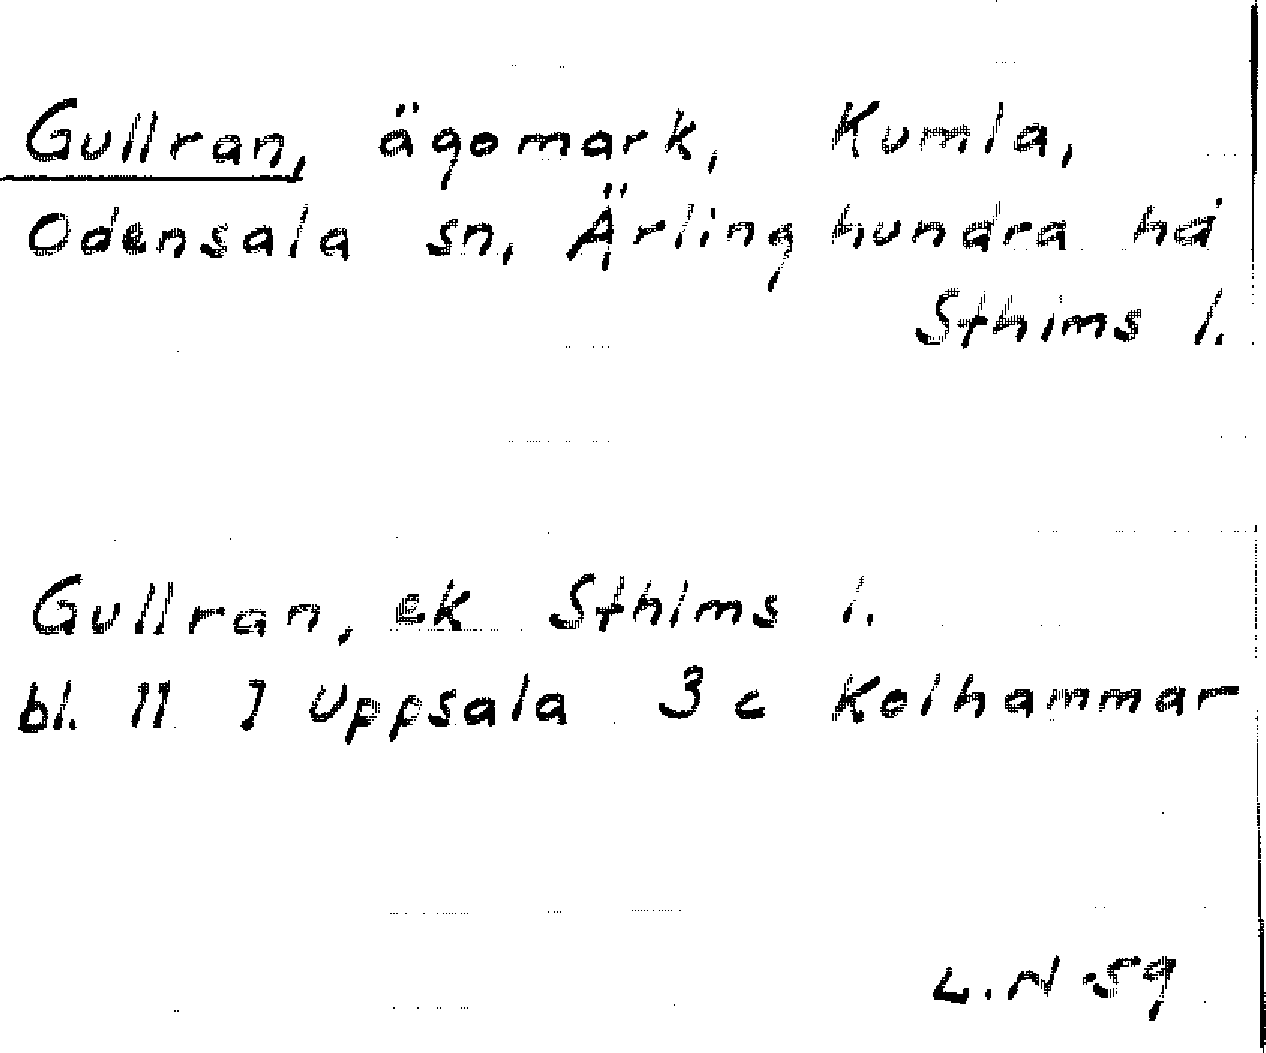 Gullran, ägomark, Kumla,
Odensala sn, Ärlinghundra hd
Sthlms l.
Gullran, ek Sthlms l.
bl. 11 I Uppsala 3c Kolhammar
L.N 59